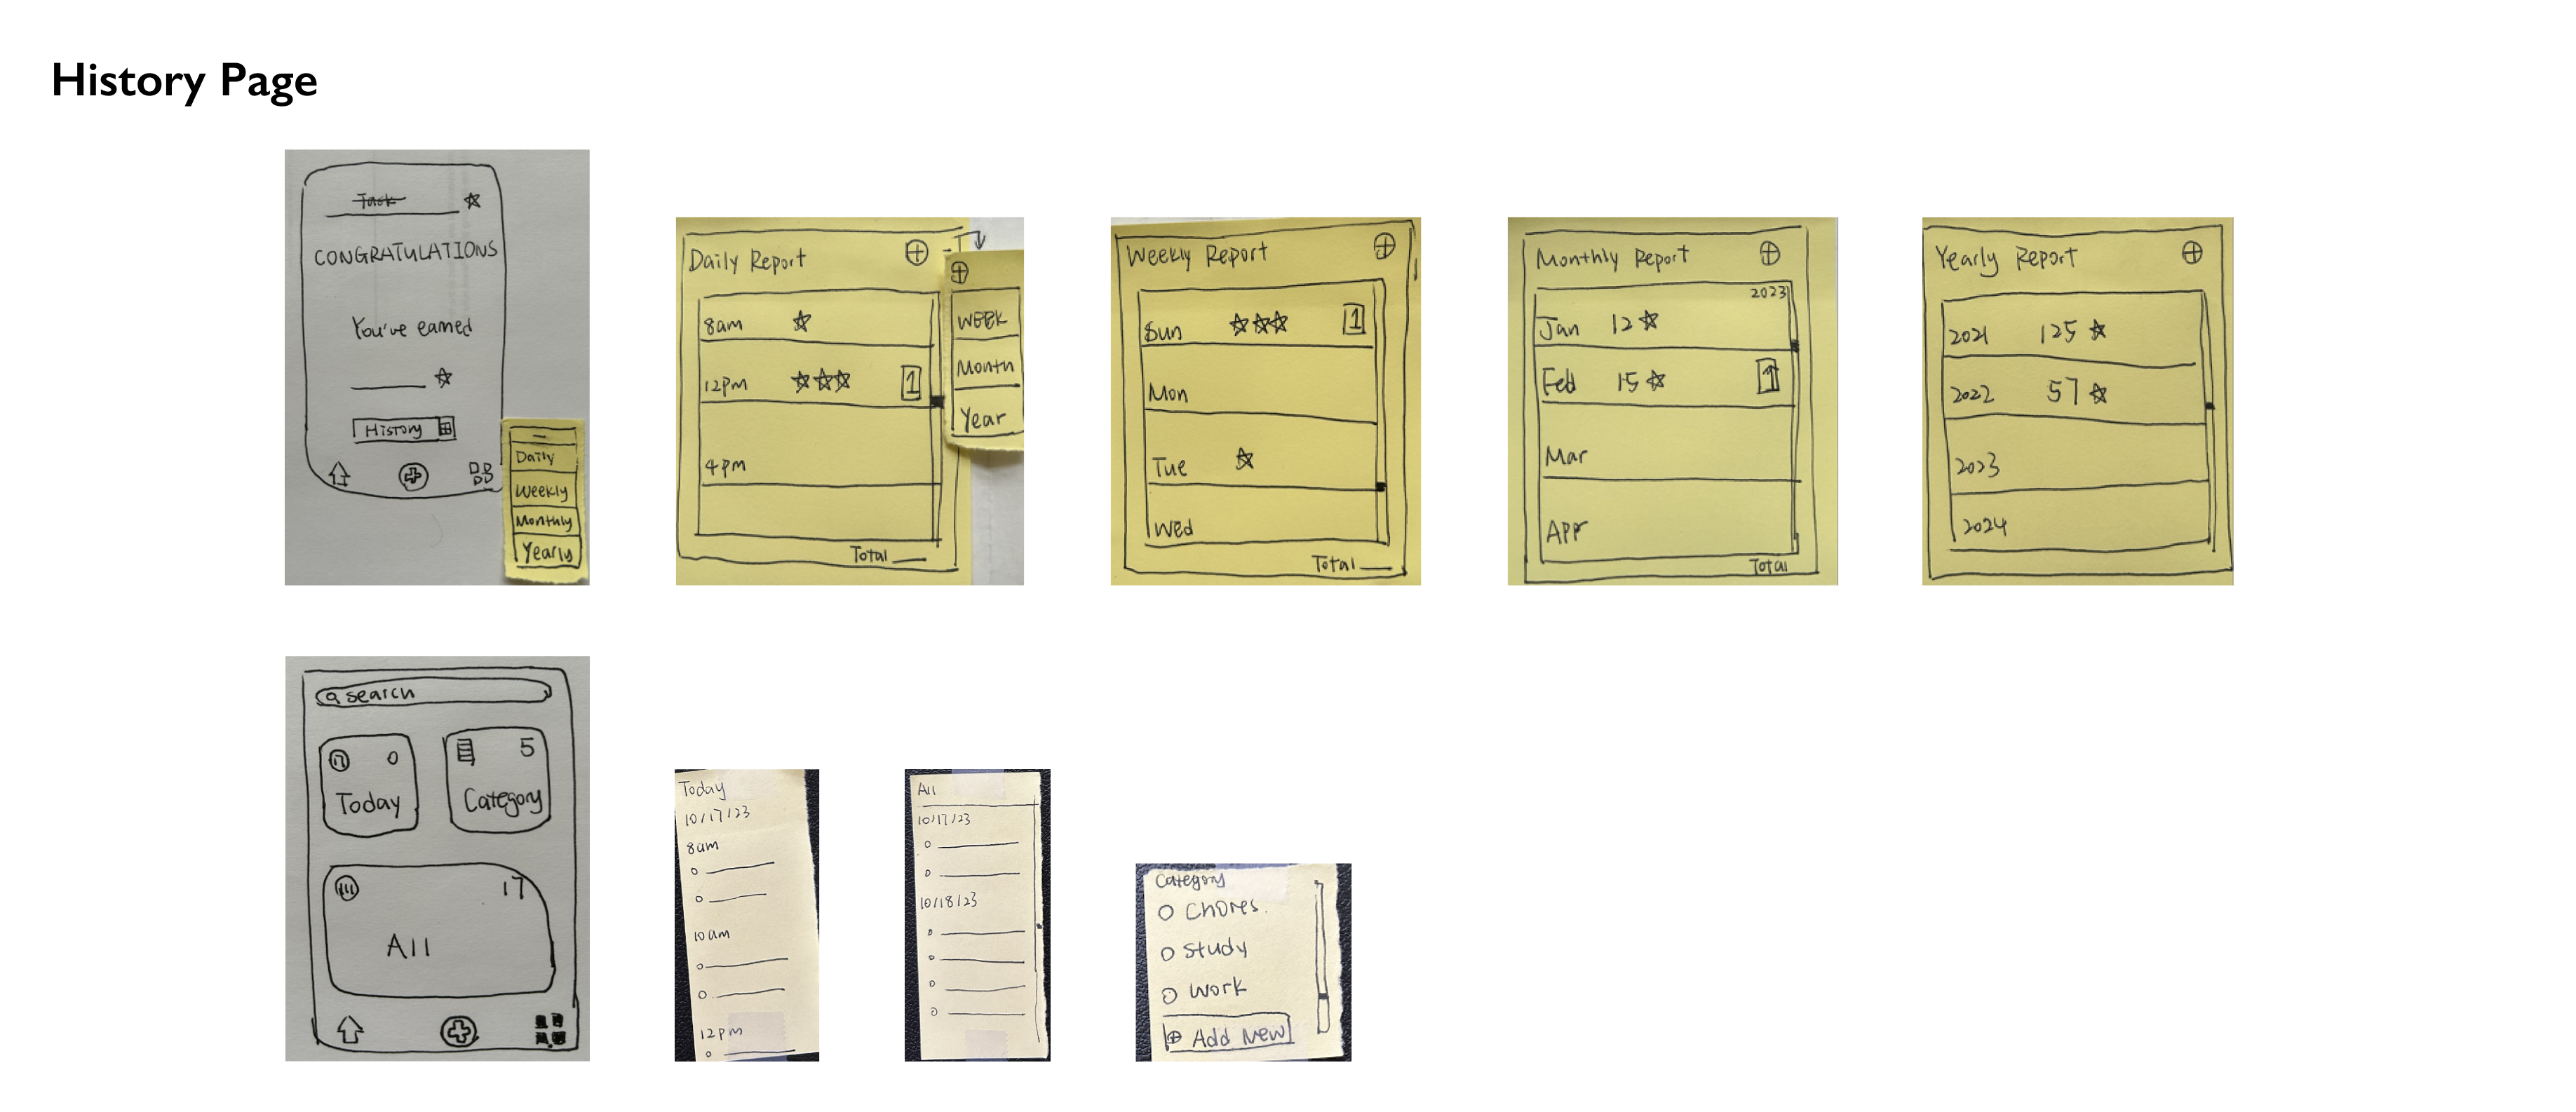 History Page
Task
CONGRATULATIONS
You've earned
History
Daily
Weekly
Monthly
Yearly
Daily Report
8am
12pm 1
4pm
Total
WEEK
Month
Year
Weekly Report
Sun 1
Mon
Tue
Wed
Total
Monthly Report
2023
Jan 12
Feb 15 1
Mar
APP
Total
Yearly Report
2021 125
2022 57
2023
2024
search
17 0
Today
5
Category
17
All
Today
10/17/23
8am
10am
12pm
All
10/17/23
10/18/23
Category
Chores.
Study
Work
Add New